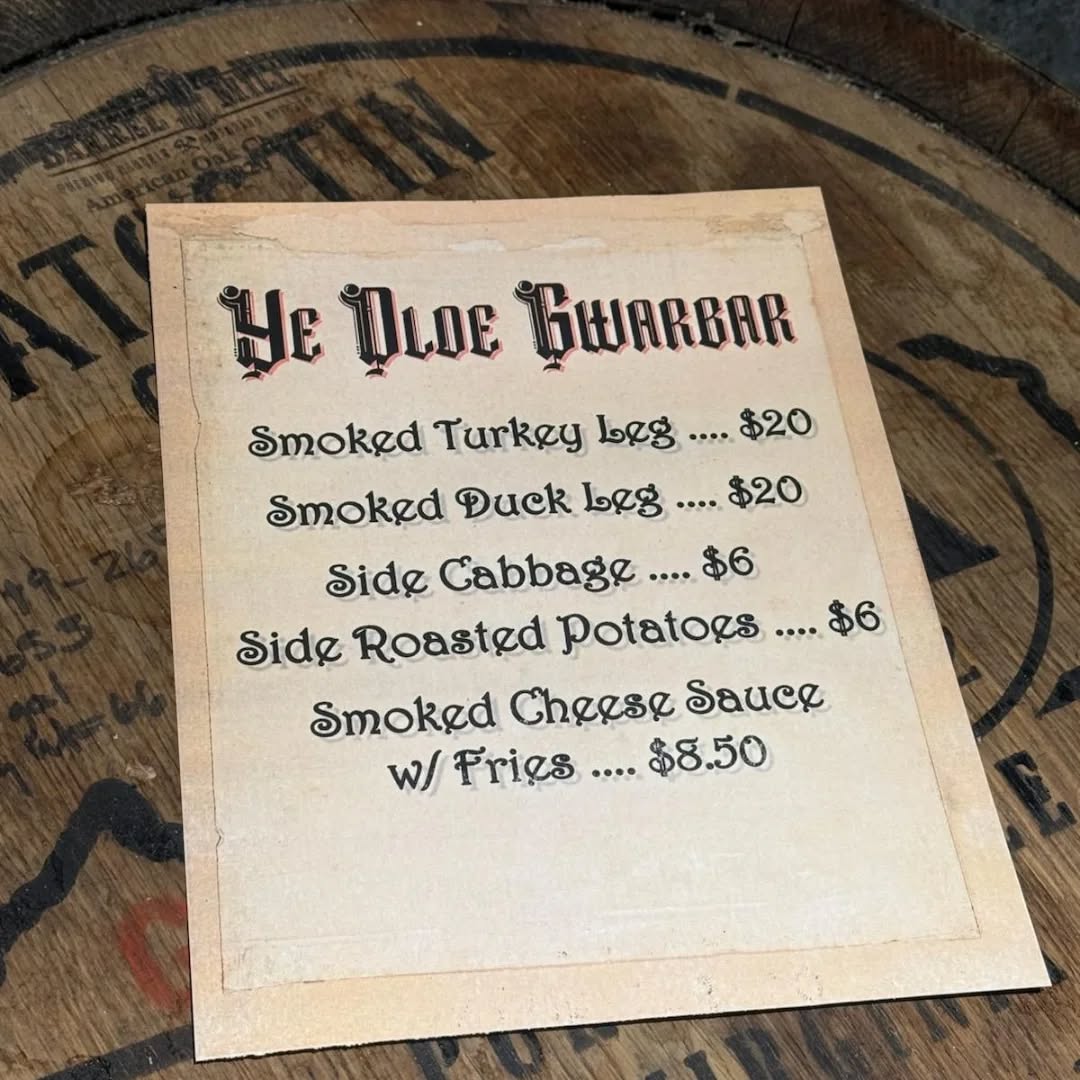 BARREL MILL
American Oak
Ye Olde Gwarbar
Smoked Turkey Leg .... $20
Smoked Duck Leg .... $20
Side Cabbage .... $6
Side Roasted Potatoes .... $6
Smoked Cheese Sauce
w/ Fries .... $8.50